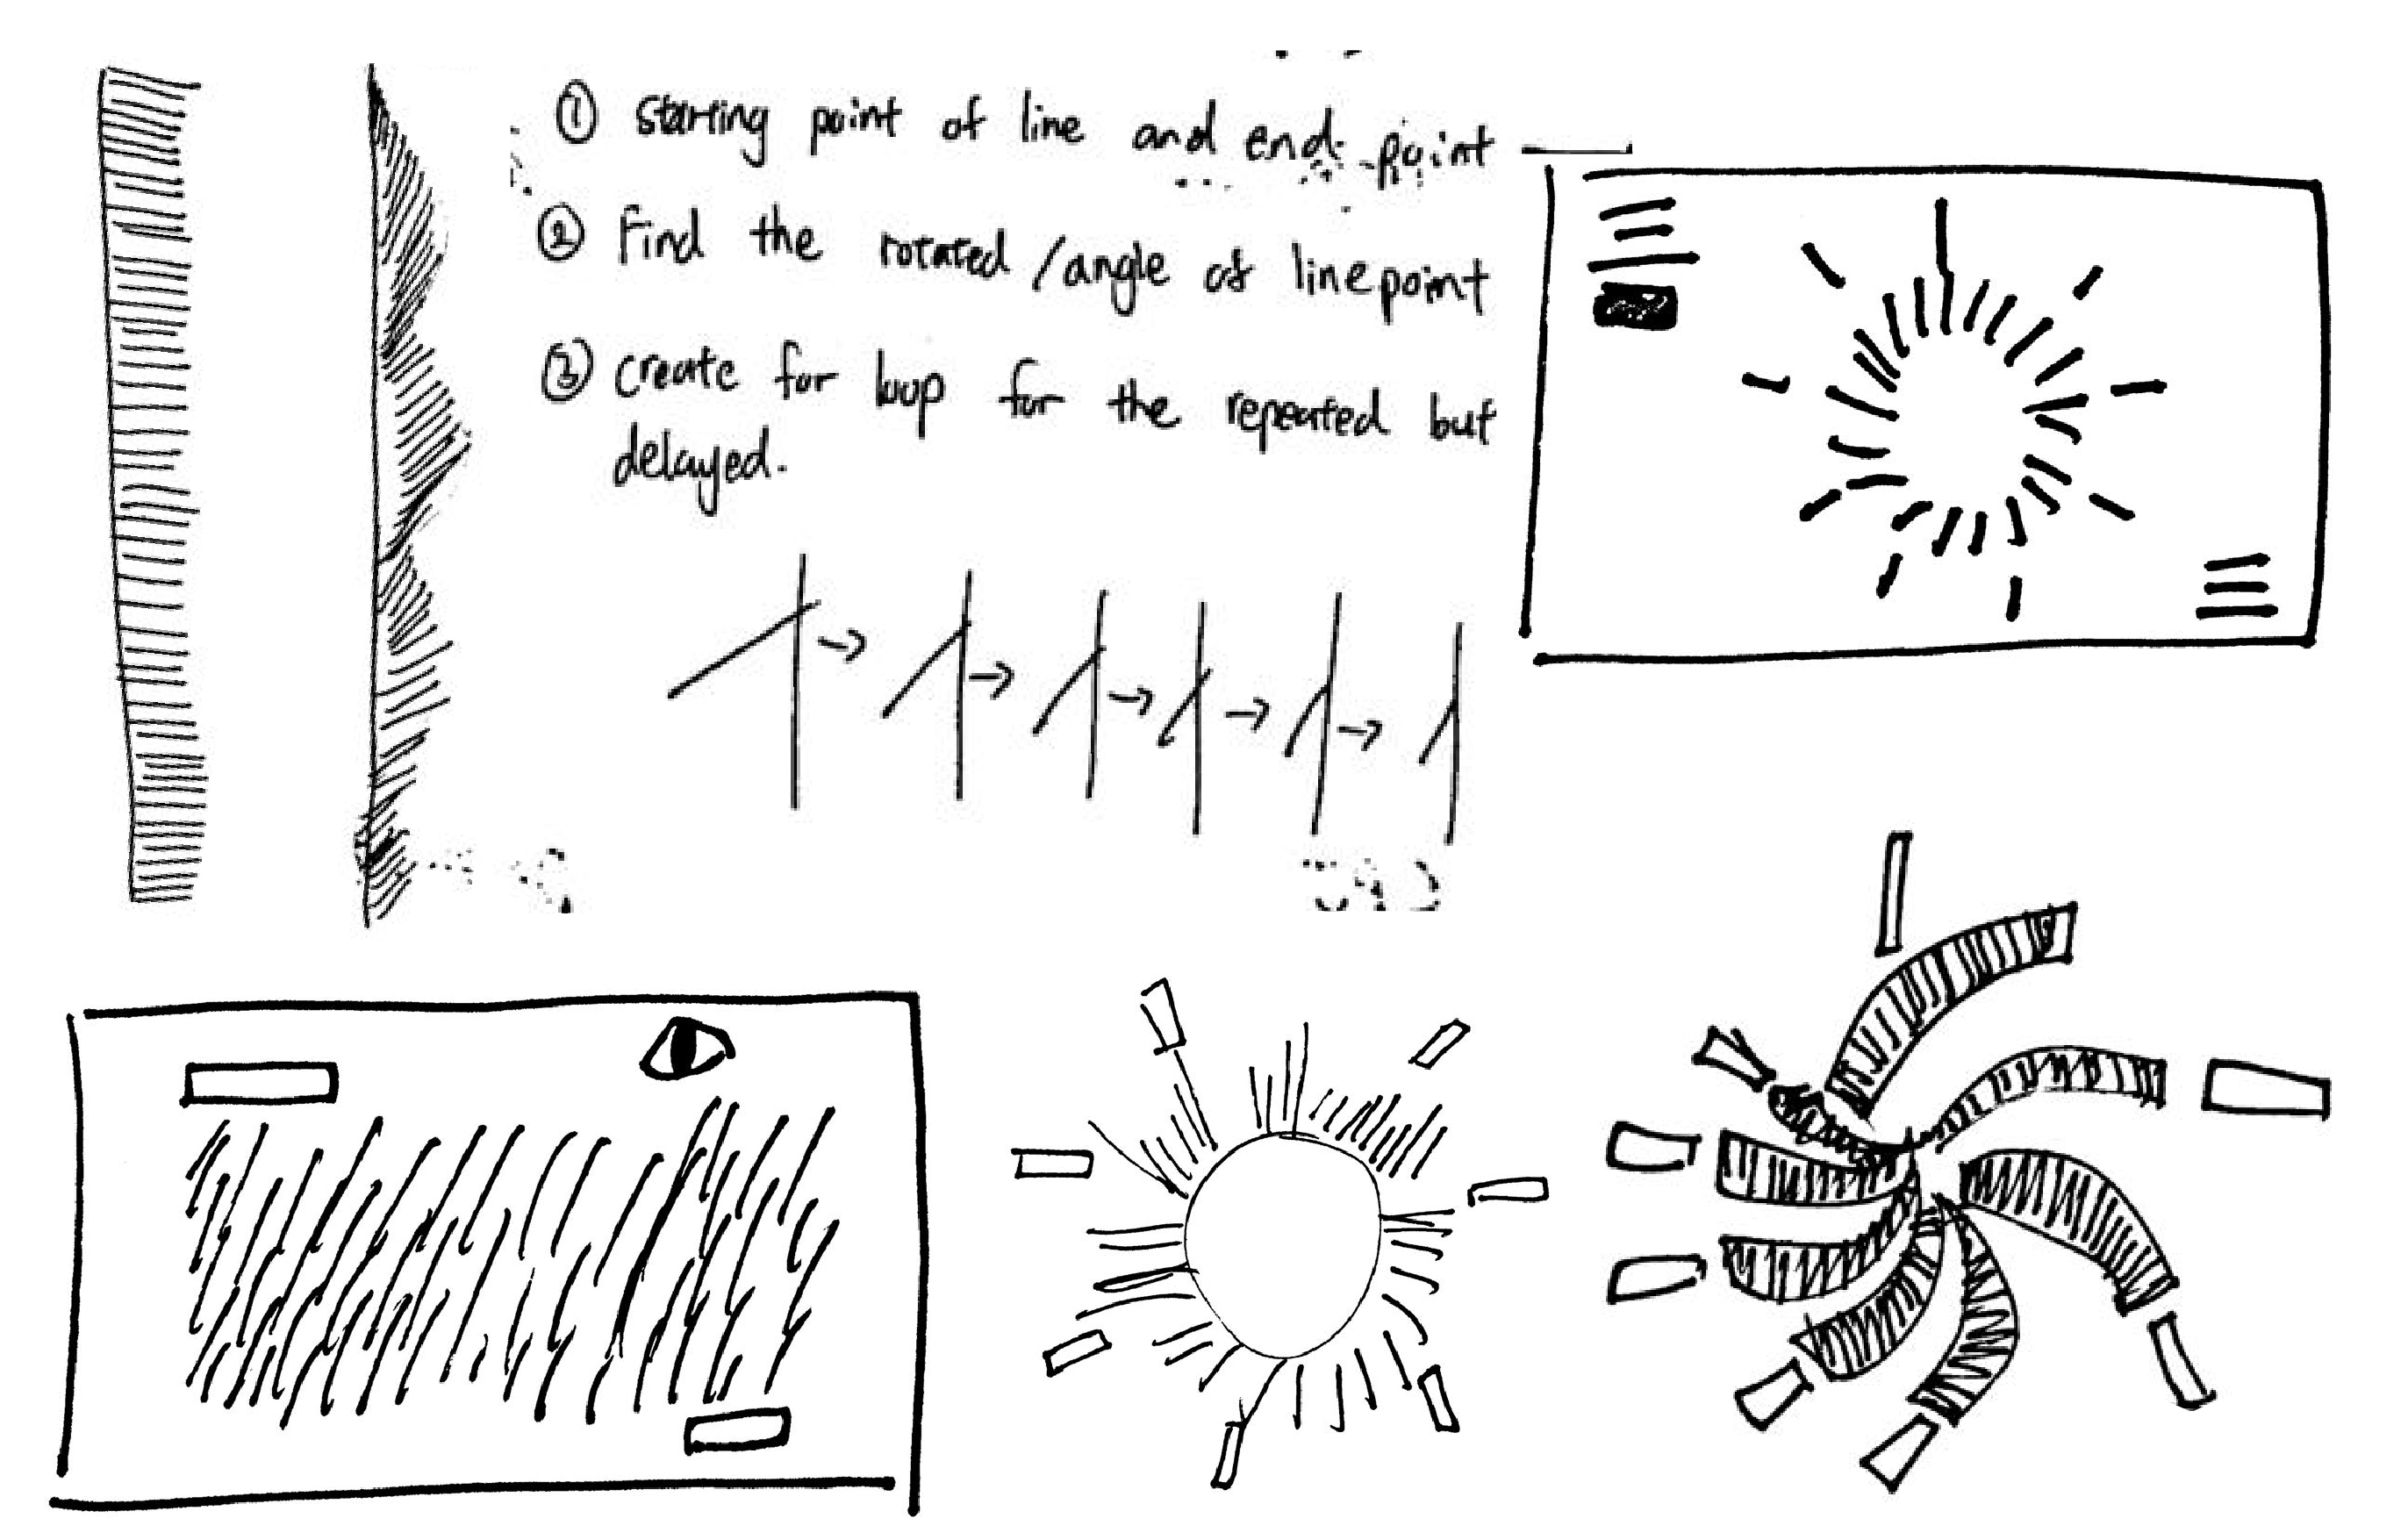 ① starting point of line and end point
② Find the rotated / angle of line point
③ create for loop for the repeated but
delayed.